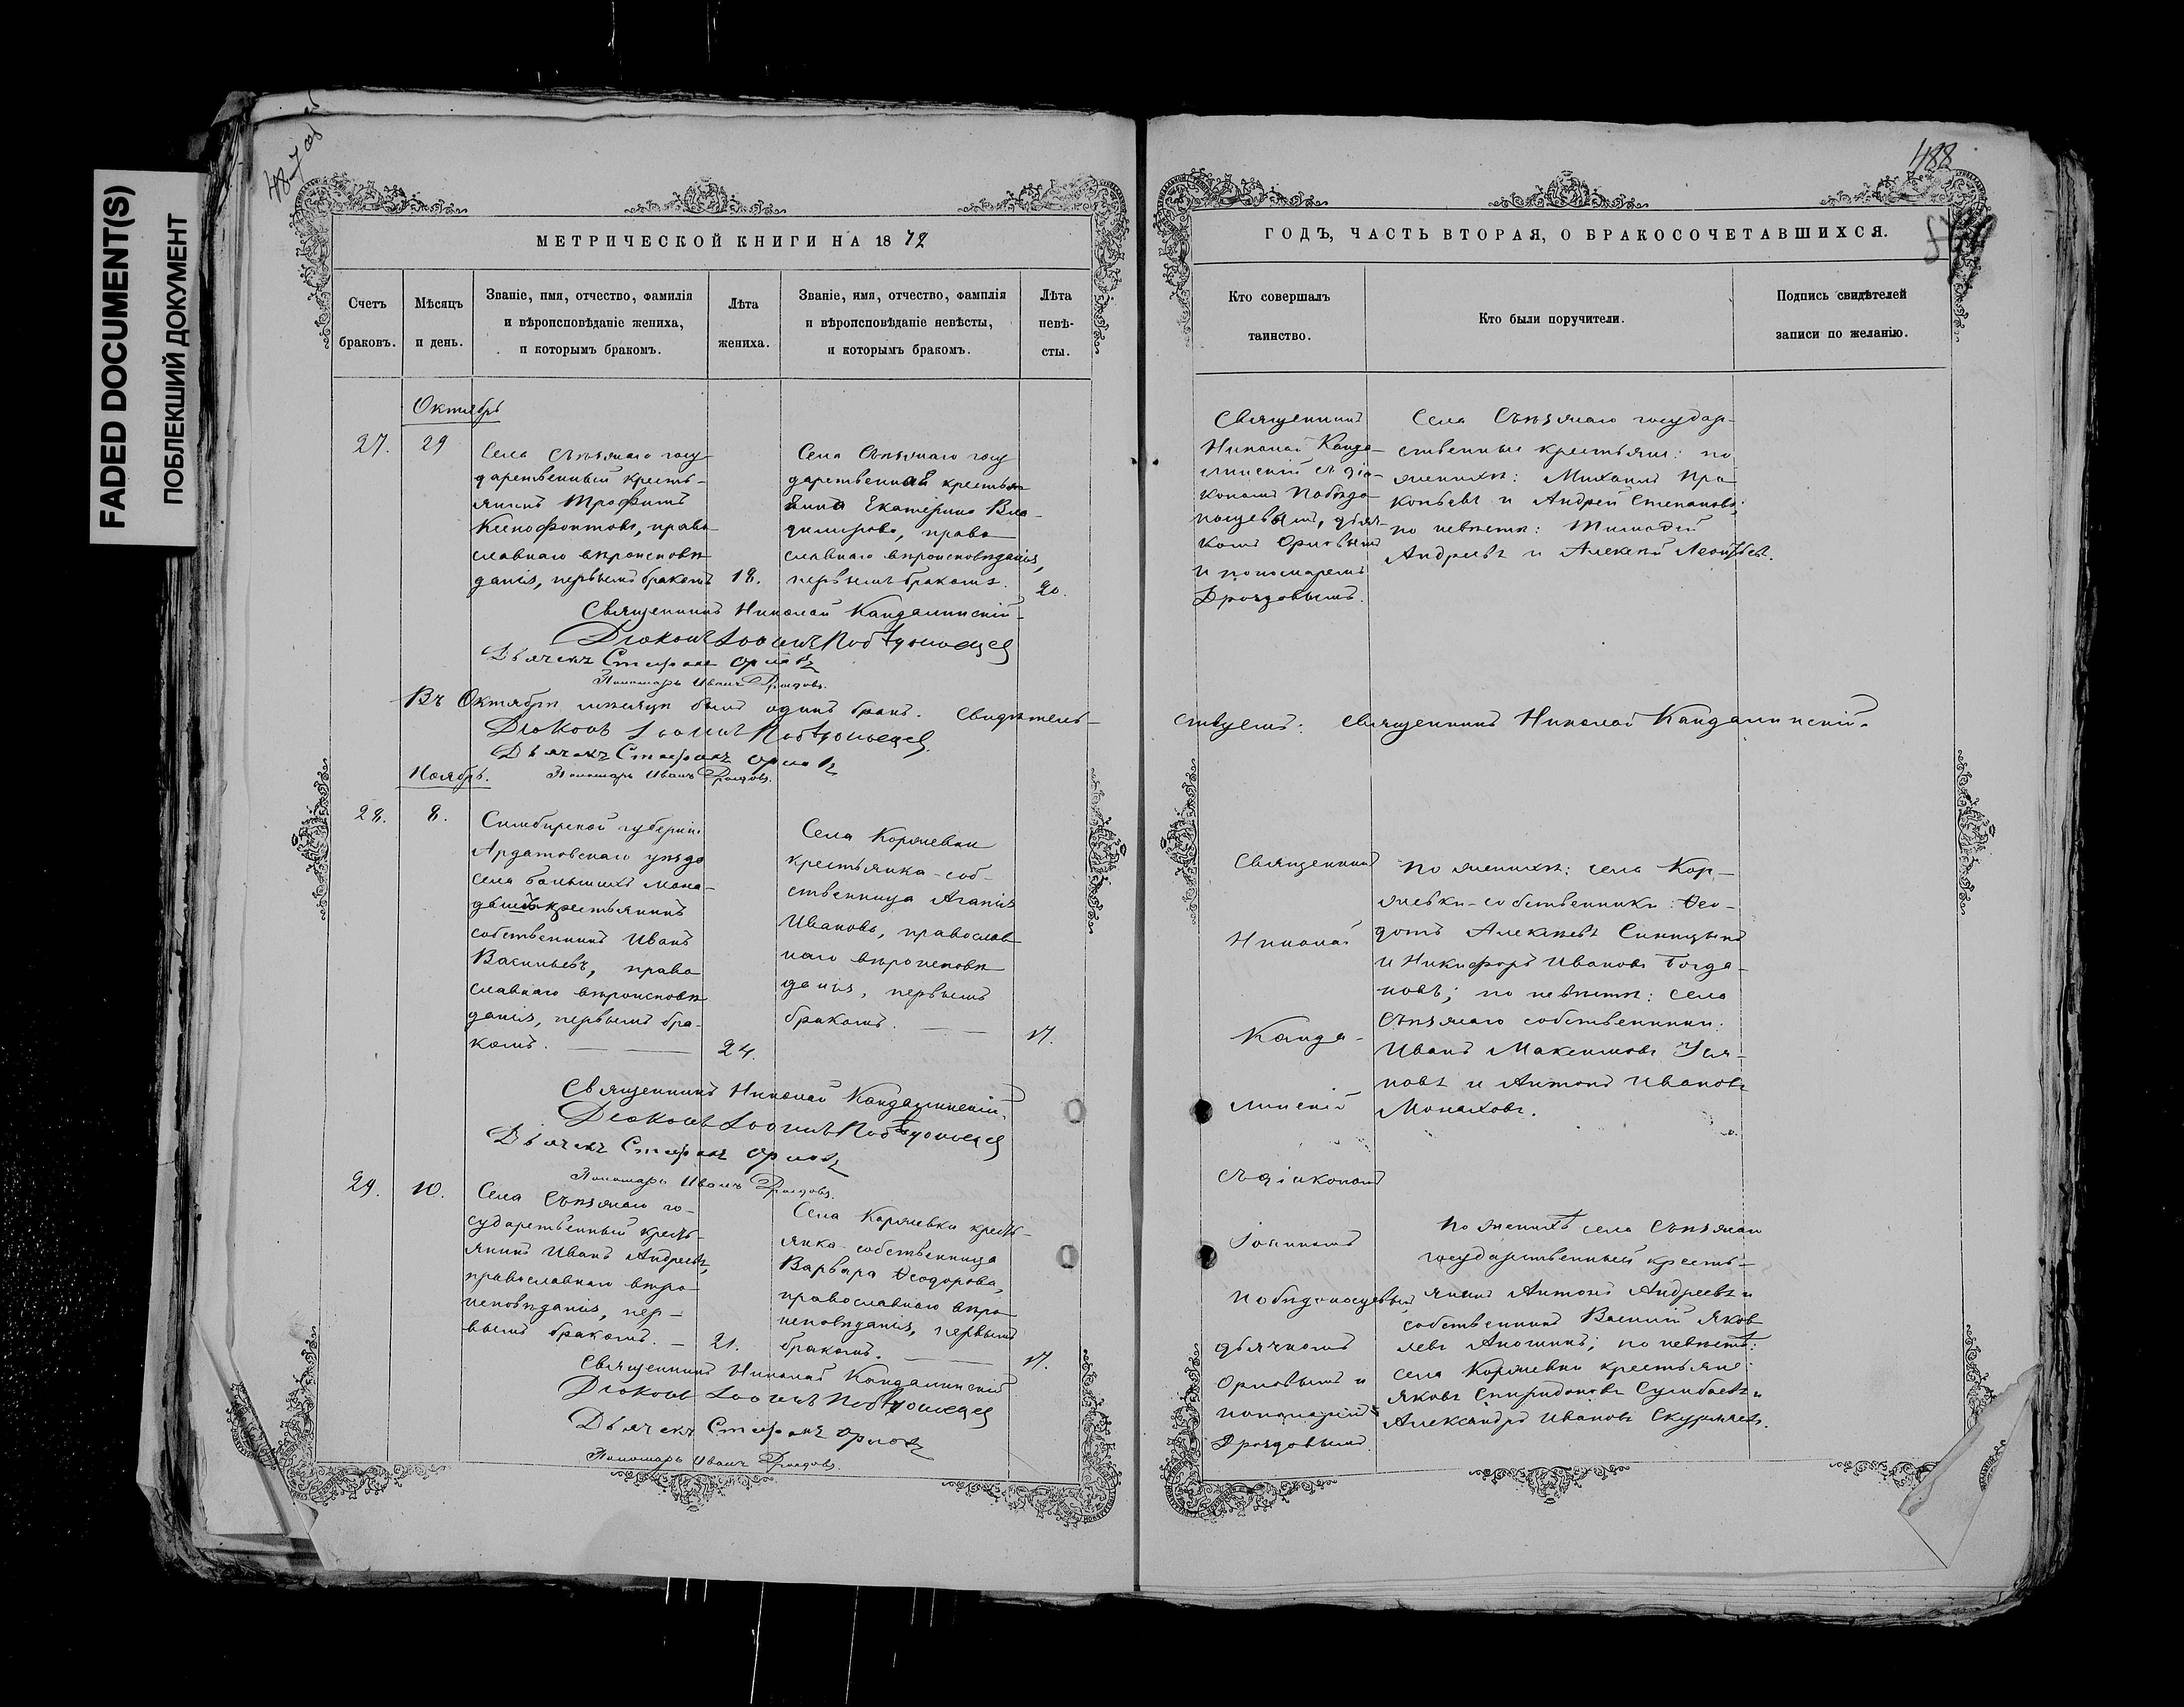 FADED DOCUMENT(S)
ПОБЛЕКШИЙ ДОКУМЕНТ
487 об
488
МЕТРИЧЕСКОЙ КНИГИ НА 1872
Счетъ браковъ.
Мѣсяцъ и день.
Званіе, имя, отчество, фамилія и вѣроисповѣданіе жениха, и которымъ бракомъ.
Лѣта жениха.
Званіе, имя, отчество, фамилія и вѣроисповѣданіе невѣсты, и которымъ бракомъ.
Лѣта невѣ-
сты.
Октябрь
27.
29
Села Съѣзжаго госу
дарственный кресть-
янинъ Трофимъ
Ксенофонтовъ, право
славнаго вѣроисповѣ
данія, первымъ бракомъ
18.
Села Съѣзжаго госу
дарственная крестьян
Екатерина Вла-
димирова, право
славнаго вѣроисповѣданія,
первымъ бракомъ.
20.
Священникъ Николай Кандалинскій
Діаконъ Іоаннъ Побѣдоносцевъ
Дьячекъ Стефанъ Орловъ
Пономарь Иванъ Дроздовъ.
Въ Октябрѣ мѣсяцѣ былъ одинъ бракъ. Свидѣтель-
Діаконъ Іоаннъ Побѣдоносцевъ.
Дьячекъ Стефанъ Орловъ
Пономарь Иванъ Дроздовъ.
Ноябрь.
28.
8.
Симбирской губерніи
Ардатовскаго уѣзда
села Большихъ Мана-
дышъ крестьянинъ
собственникъ Иванъ
Васильевъ, право
славнаго вѣроисповѣ
данія, первымъ бра-
комъ.
24.
Села Коржевки
крестьянка-соб-
ственница Агапія
Иванова, православ
наго вѣроисповѣ
данія, первымъ
бракомъ.
17.
Священникъ Николай Кандалинскій.
Діаконъ Іоаннъ Побѣдоносцевъ
Дьячекъ Стефанъ Орловъ
Пономарь Иванъ Дроздовъ.
29.
10.
Села Съѣзжаго го-
сударственный кресть-
янинъ Иванъ Андреевъ,
православнаго вѣро
исповѣданія, пер-
вымъ бракомъ.
21.
Села Коржевки кресть-
янка-собственница
Варвара Ѳеодорова,
православнаго вѣро
исповѣданія, первымъ
бракомъ.
17.
Священникъ Николай Кандалинскій
Діаконъ Іоаннъ Побѣдоносцевъ
Дьячекъ Стефанъ Орловъ
Пономарь Иванъ Дроздовъ.
ГОДЪ, ЧАСТЬ ВТОРАЯ, О БРАКОСОЧЕТАВШИХСЯ.
Кто совершалъ таинство.
Кто были поручители.
Подпись свидѣтелей записи по желанію.
Священникъ
Николай Канда-
линскій съ діа-
кономъ Побѣдо-
носцевымъ, дьяч-
комъ Орловымъ
и пономаремъ
Дроздовымъ.
Села Съѣзжаго государ-
ственные крестьяне: по
женихѣ: Михаилъ Про
копьевъ и Андрей Степановъ;
по невѣстѣ: Тимофей
Андреевъ и Алексѣй Леонтьев.
ствуетъ: Священникъ Николай Кандалинскій.
Священникъ
Николай
Канда-
линскій
съ діакономъ
Іоанномъ
Побѣдоносцевымъ,
дьячкомъ
Орловымъ и
пономаремъ
Дроздовымъ.
По женихѣ: села Кор-
жевки-собственники: Ѳео-
дотъ Алексѣевъ Синицынъ
и Никифоръ Ивановъ Богда-
новъ; по невѣстѣ: села
Съѣзжаго собственники:
Иванъ Максимовъ
и Антонъ Ивановъ
Монаховъ.
По женихѣ села Съѣзжаго
государственный кресть-
янинъ Антонъ Андреевъ и
собственникъ Василій Яков
левъ Аношинъ; по невѣстѣ:
села Коржевки крестьяне:
Яковъ Спиридоновъ и
Александръ Ивановъ